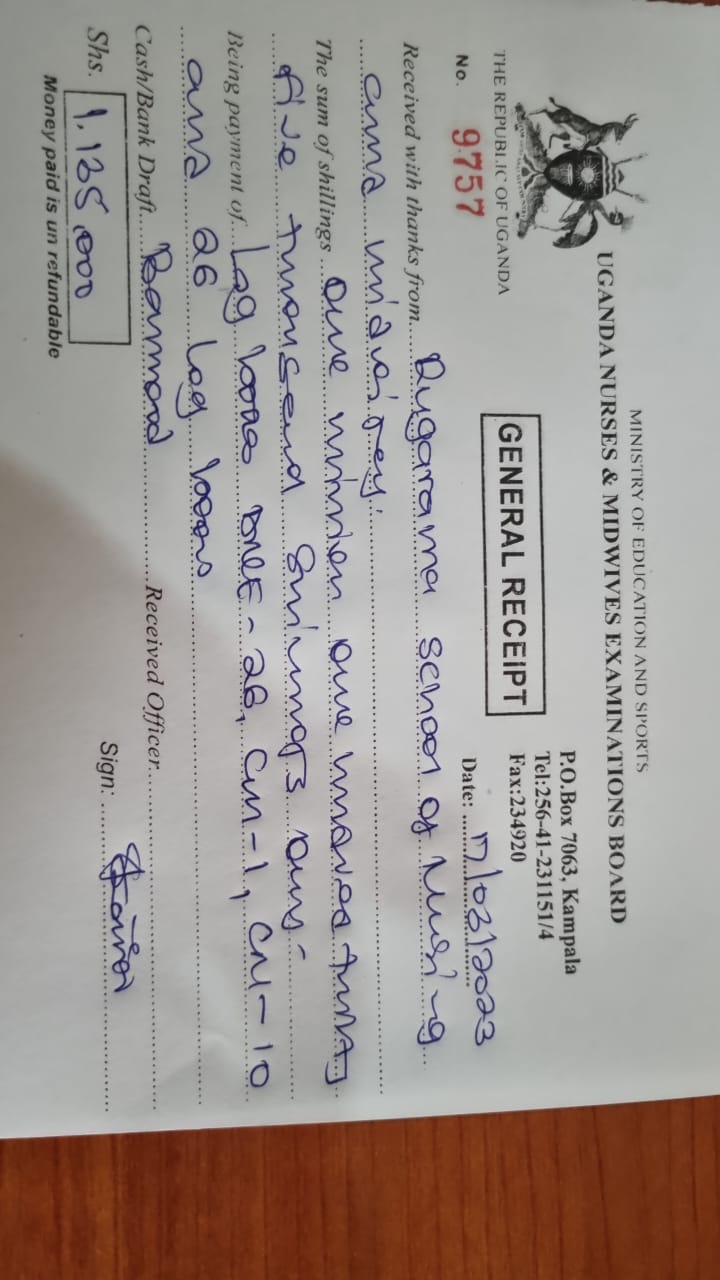 MINISTRY OF EDUCATION AND SPORTS
UGANDA NURSES & MIDWIVES EXAMINATIONS BOARD
P.O.Box 7063, Kampala
Tel:256-41-231151/4
Fax:234920
THE REPUBLIC OF UGANDA
GENERAL RECEIPT
No. 9757
Date: 17/03/2023
Received with thanks from Rugarama School of Nursing
and midwifery.
The sum of shillings one million one hundred thirty
five thousand shillings only-
Being payment of Log books DNE-28, CM-1, CN-10
and 26 Log books
Cash/Bank Draft Received Officer
Shs. 1,135,000 Sign:
Money paid is un refundable